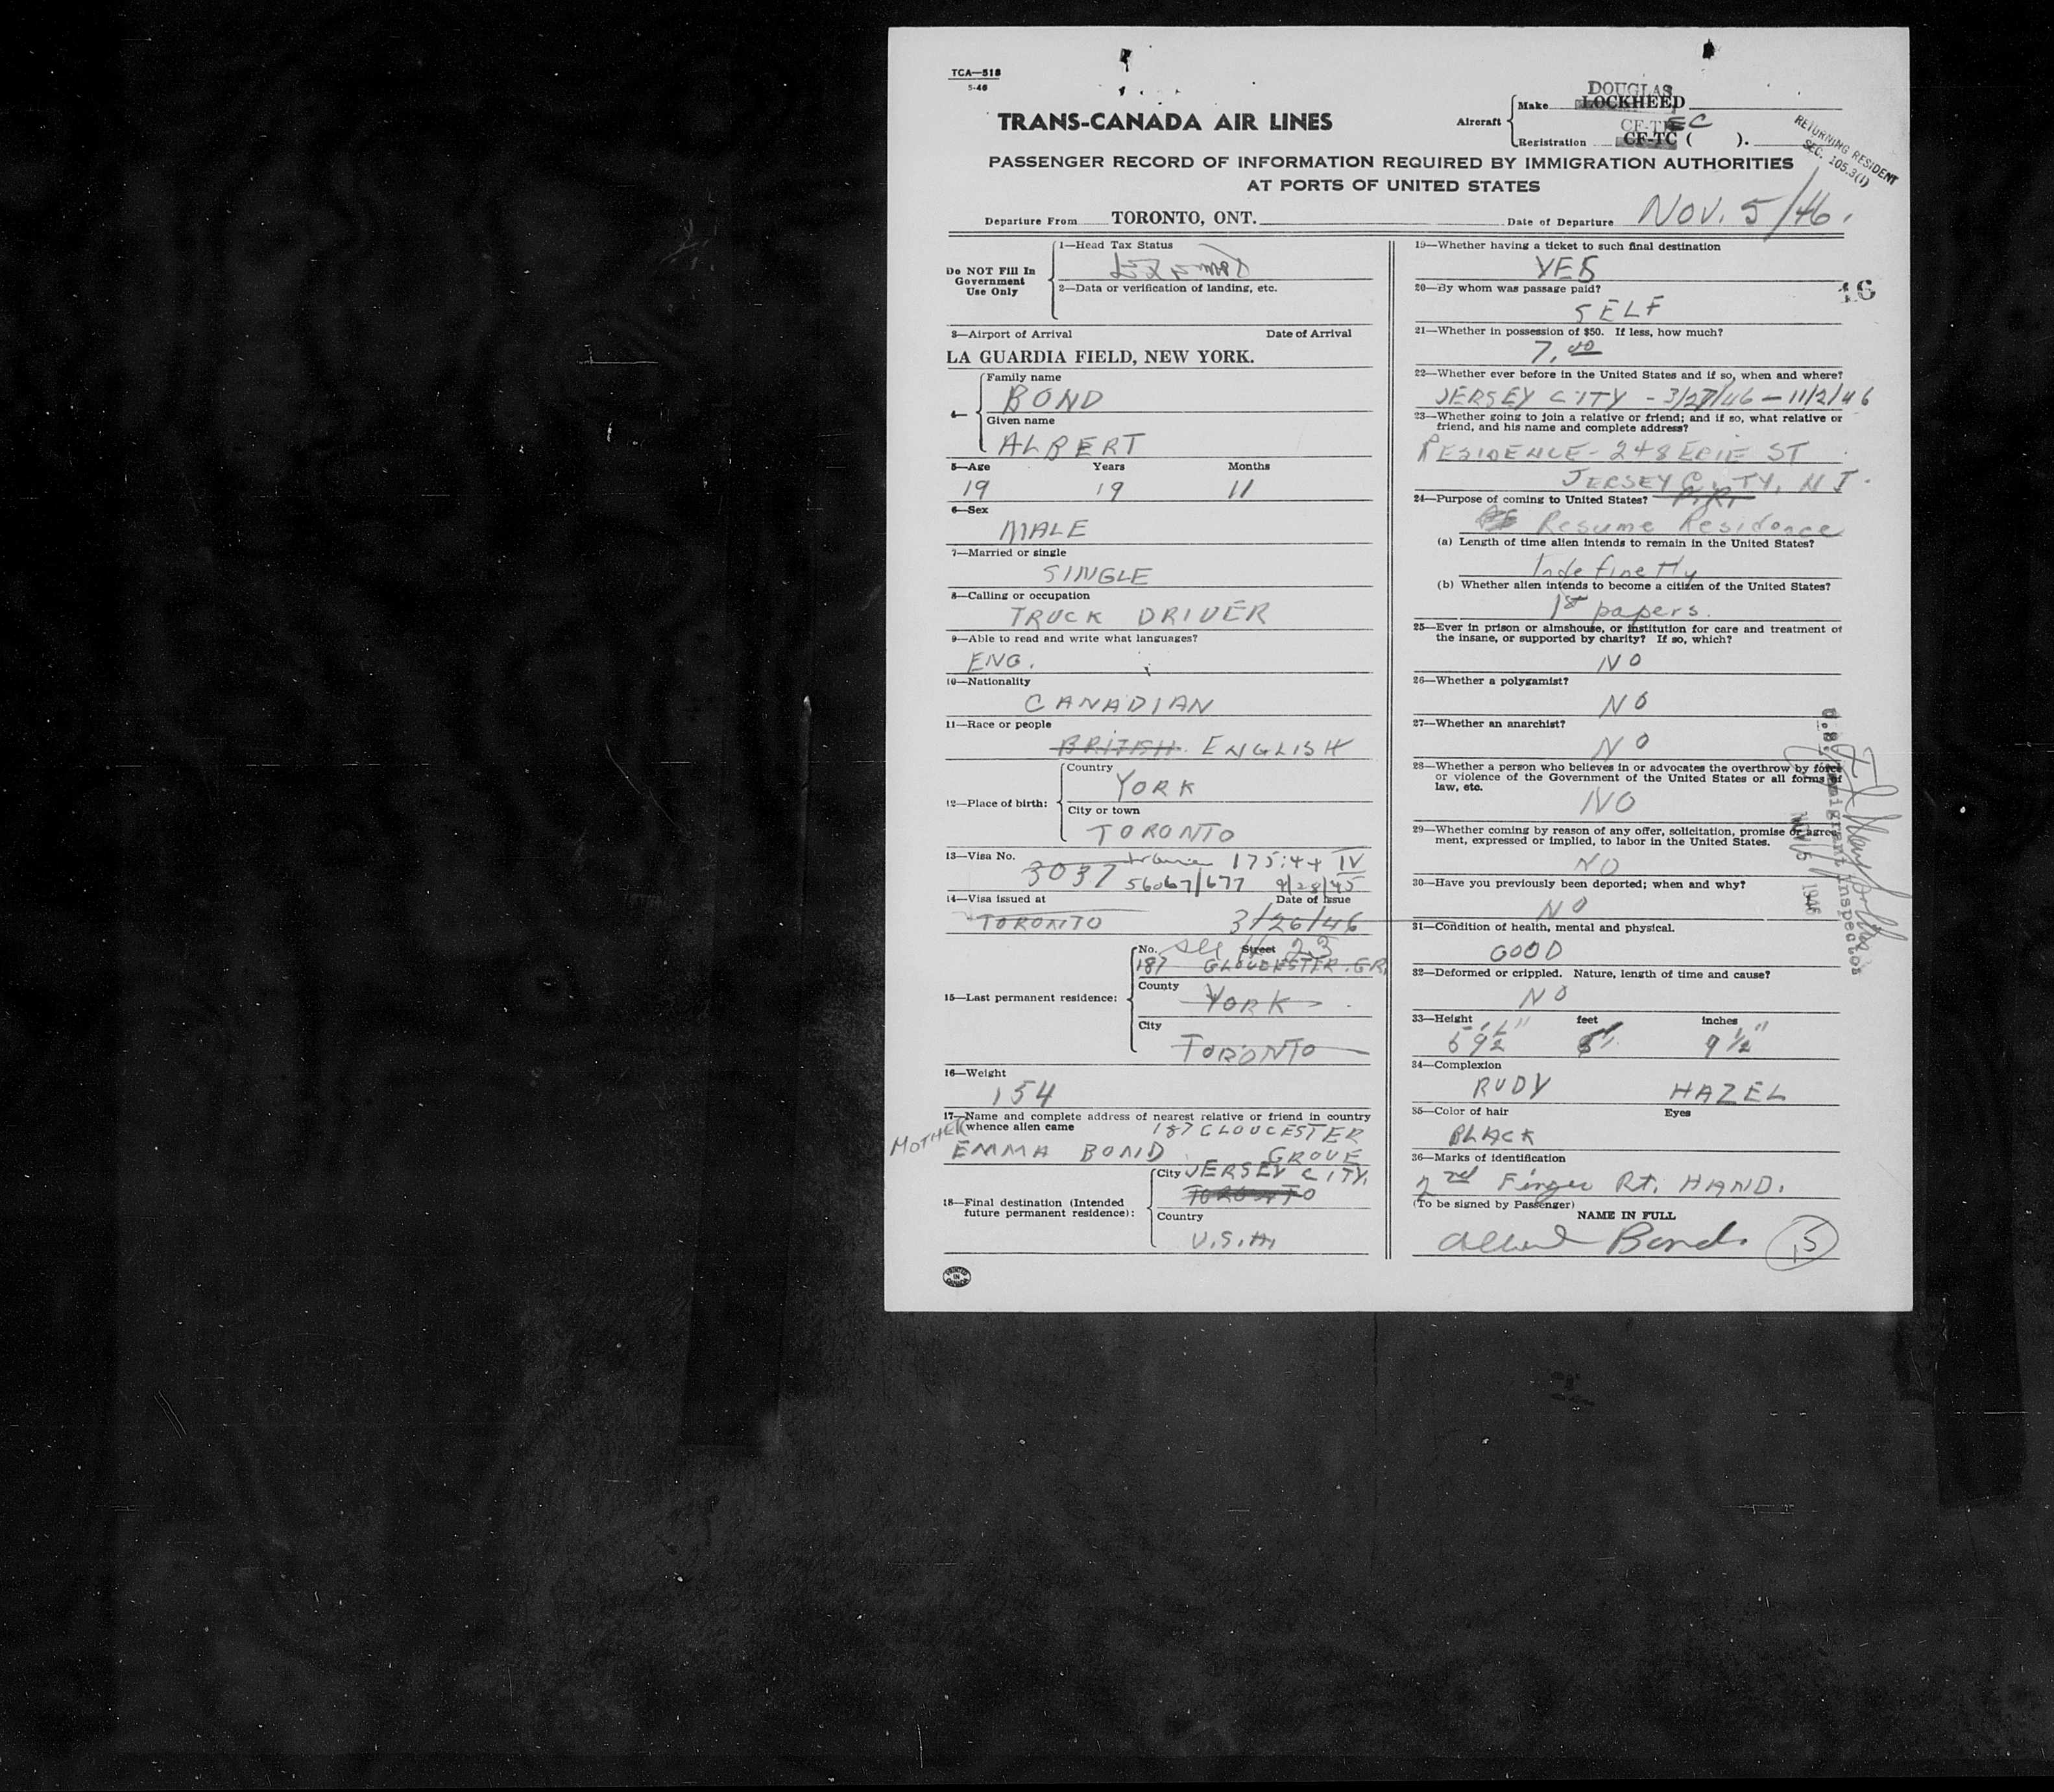 TCA—518
5-46
TRANS-CANADA AIR LINES
Aircraft
Make DOUGLAS
LOCKHEED
Registration CF-T EC
CF-TC ( ).
RETURNING RESIDENT
SEC. 105.3(1)
PASSENGER RECORD OF INFORMATION REQUIRED BY IMMIGRATION AUTHORITIES
AT PORTS OF UNITED STATES
Departure From TORONTO, ONT. Date of Departure NOV. 5/46.
Do NOT Fill In
Government
Use Only
1—Head Tax Status
2—Data or verification of landing, etc.
3—Airport of Arrival Date of Arrival
LA GUARDIA FIELD, NEW YORK.
4—
Family name
BOND
Given name
ALBERT
5—Age Years Months
19 19 11
6—Sex
MALE
7—Married or single
SINGLE
8—Calling or occupation
TRUCK DRIVER
9—Able to read and write what languages?
ENG.
10—Nationality
CANADIAN
11—Race or people
BRITISH. ENGLISH
12—Place of birth:
Country
YORK
City or town
TORONTO
13—Visa No.
175:44 IV
3037 56067/677 9/28/45
14—Visa issued at Date of Issue
TORONTO 3/26/46
15—Last permanent residence:
No. Street 23
187 GLOUCESTER GR.
County
YORK
City
TORONTO
16—Weight
154
17—Name and complete address of nearest relative or friend in country
whence alien came 187 GLOUCESTER
MOTHER EMMA BOND GROVE
18—Final destination (Intended
future permanent residence):
City JERSEY CITY.
TORONTO
Country
U.S.A.
PRINTED
IN
CANADA
19—Whether having a ticket to such final destination
YES
20—By whom was passage paid?
16
SELF
21—Whether in possession of $50. If less, how much?
7.00
22—Whether ever before in the United States and if so, when and where?
JERSEY CITY - 3/27/46 - 11/2/46
23—Whether going to join a relative or friend; and if so, what relative or
friend, and his name and complete address?
RESIDENCE - 248 ERIE ST
JERSEY CITY, N J.
24—Purpose of coming to United States? P.R.
Resume Residence
(a) Length of time alien intends to remain in the United States?
Indefinetly
(b) Whether alien intends to become a citizen of the United States?
1st papers.
25—Ever in prison or almshouse, or institution for care and treatment of
the insane, or supported by charity? If so, which?
NO
26—Whether a polygamist?
NO
27—Whether an anarchist?
NO
28—Whether a person who believes in or advocates the overthrow by force
or violence of the Government of the United States or all forms of
law, etc.
NO
29—Whether coming by reason of any offer, solicitation, promise or agree-
ment, expressed or implied, to labor in the United States.
NO
30—Have you previously been deported; when and why?
NO
31—Condition of health, mental and physical.
GOOD
32—Deformed or crippled. Nature, length of time and cause?
NO
33—Height feet inches
5' 9½" 5' 9½"
34—Complexion
RUDY HAZEL
35—Color of hair Eyes
BLACK
36—Marks of identification
2nd Finger Rt. HAND.
(To be signed by Passenger)
NAME IN FULL
Albert Bond. 15
U.S. Immigrant Inspector
NOV 5 1946